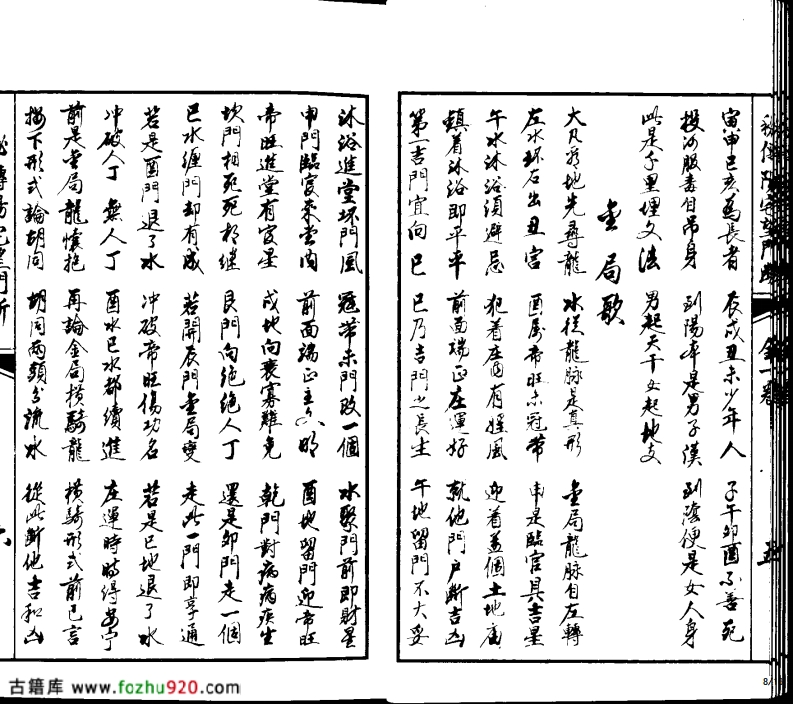 寅申巳亥為長者 辰戌丑未少年人 子午卯酉不善死
投河服毒自吊身 到陽牽是男子漢 到陰便是女人身
此是千里埋文法 男起天干女起地支
金局歌
大凡尋地先尋龍 水從龍脉是真形 金局龍脉自左轉
左水环右出丑宮 酉属帝旺未冠帶 申是臨官具吉星
午水沐浴須避忌 犯着庄内有媱風 迎着盖個土地庙
鎮着沐浴即平平 前面端正庄運好 就他門户断吉凶
第一吉門宜向巳 巳乃吉門之長生 午地留門不大妥
沐浴進堂坏門風 冠帶未門改一個 水聚門前即財星
申門臨官來堂内 前面端正主六明 酉地留門迎帝旺
帝旺進堂有官星 戌地向衰寡難免 乾門對病病疾生
坎門相死死相继 艮門向绝绝人丁 還是卯門走一個
巳水纏門却有成 若開辰門金局变 走此一門即享通
若是酉門退了水 冲破帝旺傷功名 若是巳地退了水
冲破人丁無人丁 酉水巳水都續進 庄運時時得安宁
前是金局龍懷抱 再論金局横騎龍 横騎形式前已言
按下形式論胡同 胡同两頭分流水 從此断他吉和凶
五
六
古籍库 www.fozhu920.com
8/